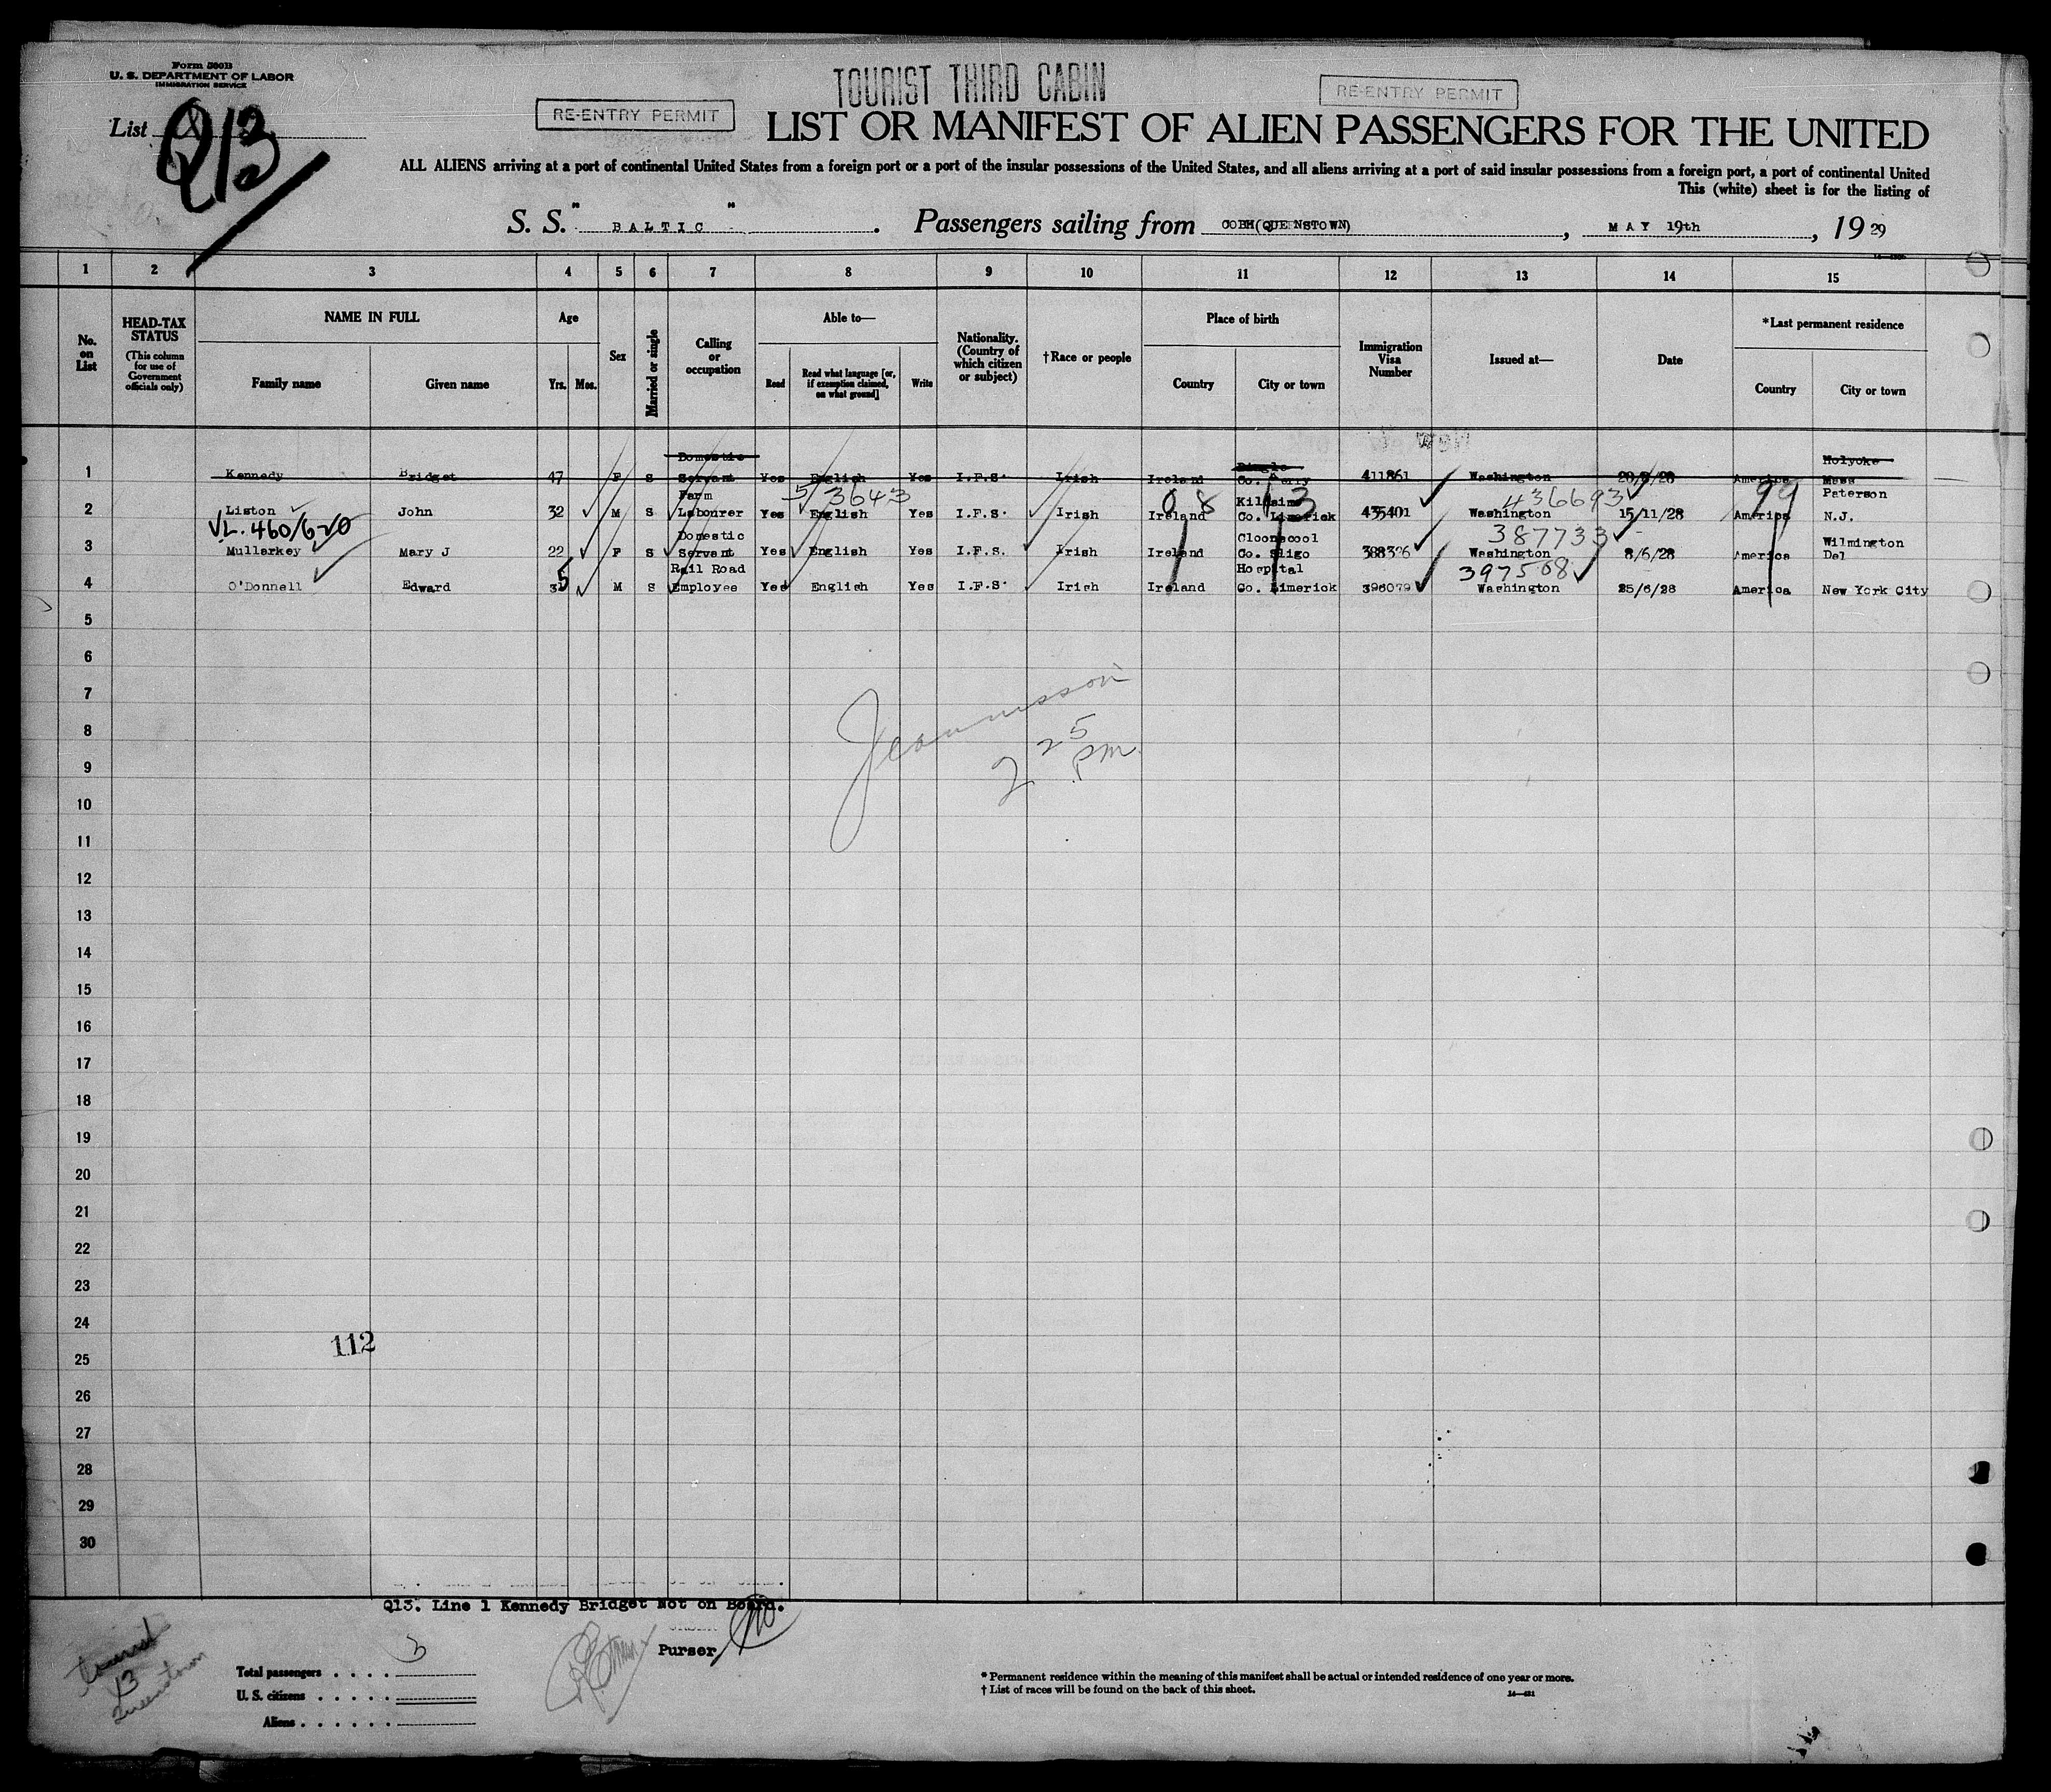 Form 500B
U. S. DEPARTMENT OF LABOR
IMMIGRATION SERVICE
TOURIST THIRD CABIN
RE-ENTRY PERMIT
RE-ENTRY PERMIT
List Q13
LIST OR MANIFEST OF ALIEN PASSENGERS FOR THE UNITED
ALL ALIENS arriving at a port of continental United States from a foreign port or a port of the insular possessions of the United States, and all aliens arriving at a port of said insular possessions from a foreign port, a port of continental United
This (white) sheet is for the listing of
S. S. "BALTIC". Passengers sailing from COBH(QUEENSTOWN), MAY 19th, 1929
1 2 3 4 5 6 7 8 9 10 11 12 13 14 15
No. on List
HEAD-TAX STATUS
(This column for use of Government officials only)
NAME IN FULL
Family name Given name
Age
Yrs. Mos.
Sex
Married or single
Calling or occupation
Able to—
Read Read what language [or, if exemption claimed, on what ground] Write
Nationality. (Country of which citizen or subject)
†Race or people
Place of birth
Country City or town
Immigration Visa Number
Issued at—
Date
*Last permanent residence
Country City or town
1 Kennedy Bridget 47 F S Domestic Servant Yes English Yes I.F.S. Irish Ireland Dingle Co. Kerry 411861 Washington America Holyoke Mass
5/3643 08 13 436693 99
2 Liston John 32 M S Farm Labourer Yes English Yes I.F.S. Irish Ireland Co. Limerick 435401 Washington 15/11/28 America Paterson N.J.
VL. 460/620 387733
3 Mullarkey Mary J 22 F S Domestic Servant Yes English Yes I.F.S. Irish Ireland Cloonacool Co. Sligo 388326 Washington 8/6/28 America Wilmington Del
397508
4 O'Donnell Edward 35 M S Rail Road Employee Yes English Yes I.F.S. Irish Ireland Hospital Co. Limerick 396079 Washington 25/6/28 America New York City
5
6
7
8
2 25 pm
9
10
11
12
13
14
15
16
17
18
19
20
21
22
23
24
112
25
26
27
28
29
30
Q13. Line 1 Kennedy Bridget Not on Board.
Purser
tourist
13
Queenstown
Total passengers . . . . 3
U. S. citizens . . . . .
Aliens . . . . . .
* Permanent residence within the meaning of this manifest shall be actual or intended residence of one year or more.
† List of races will be found on the back of this sheet.